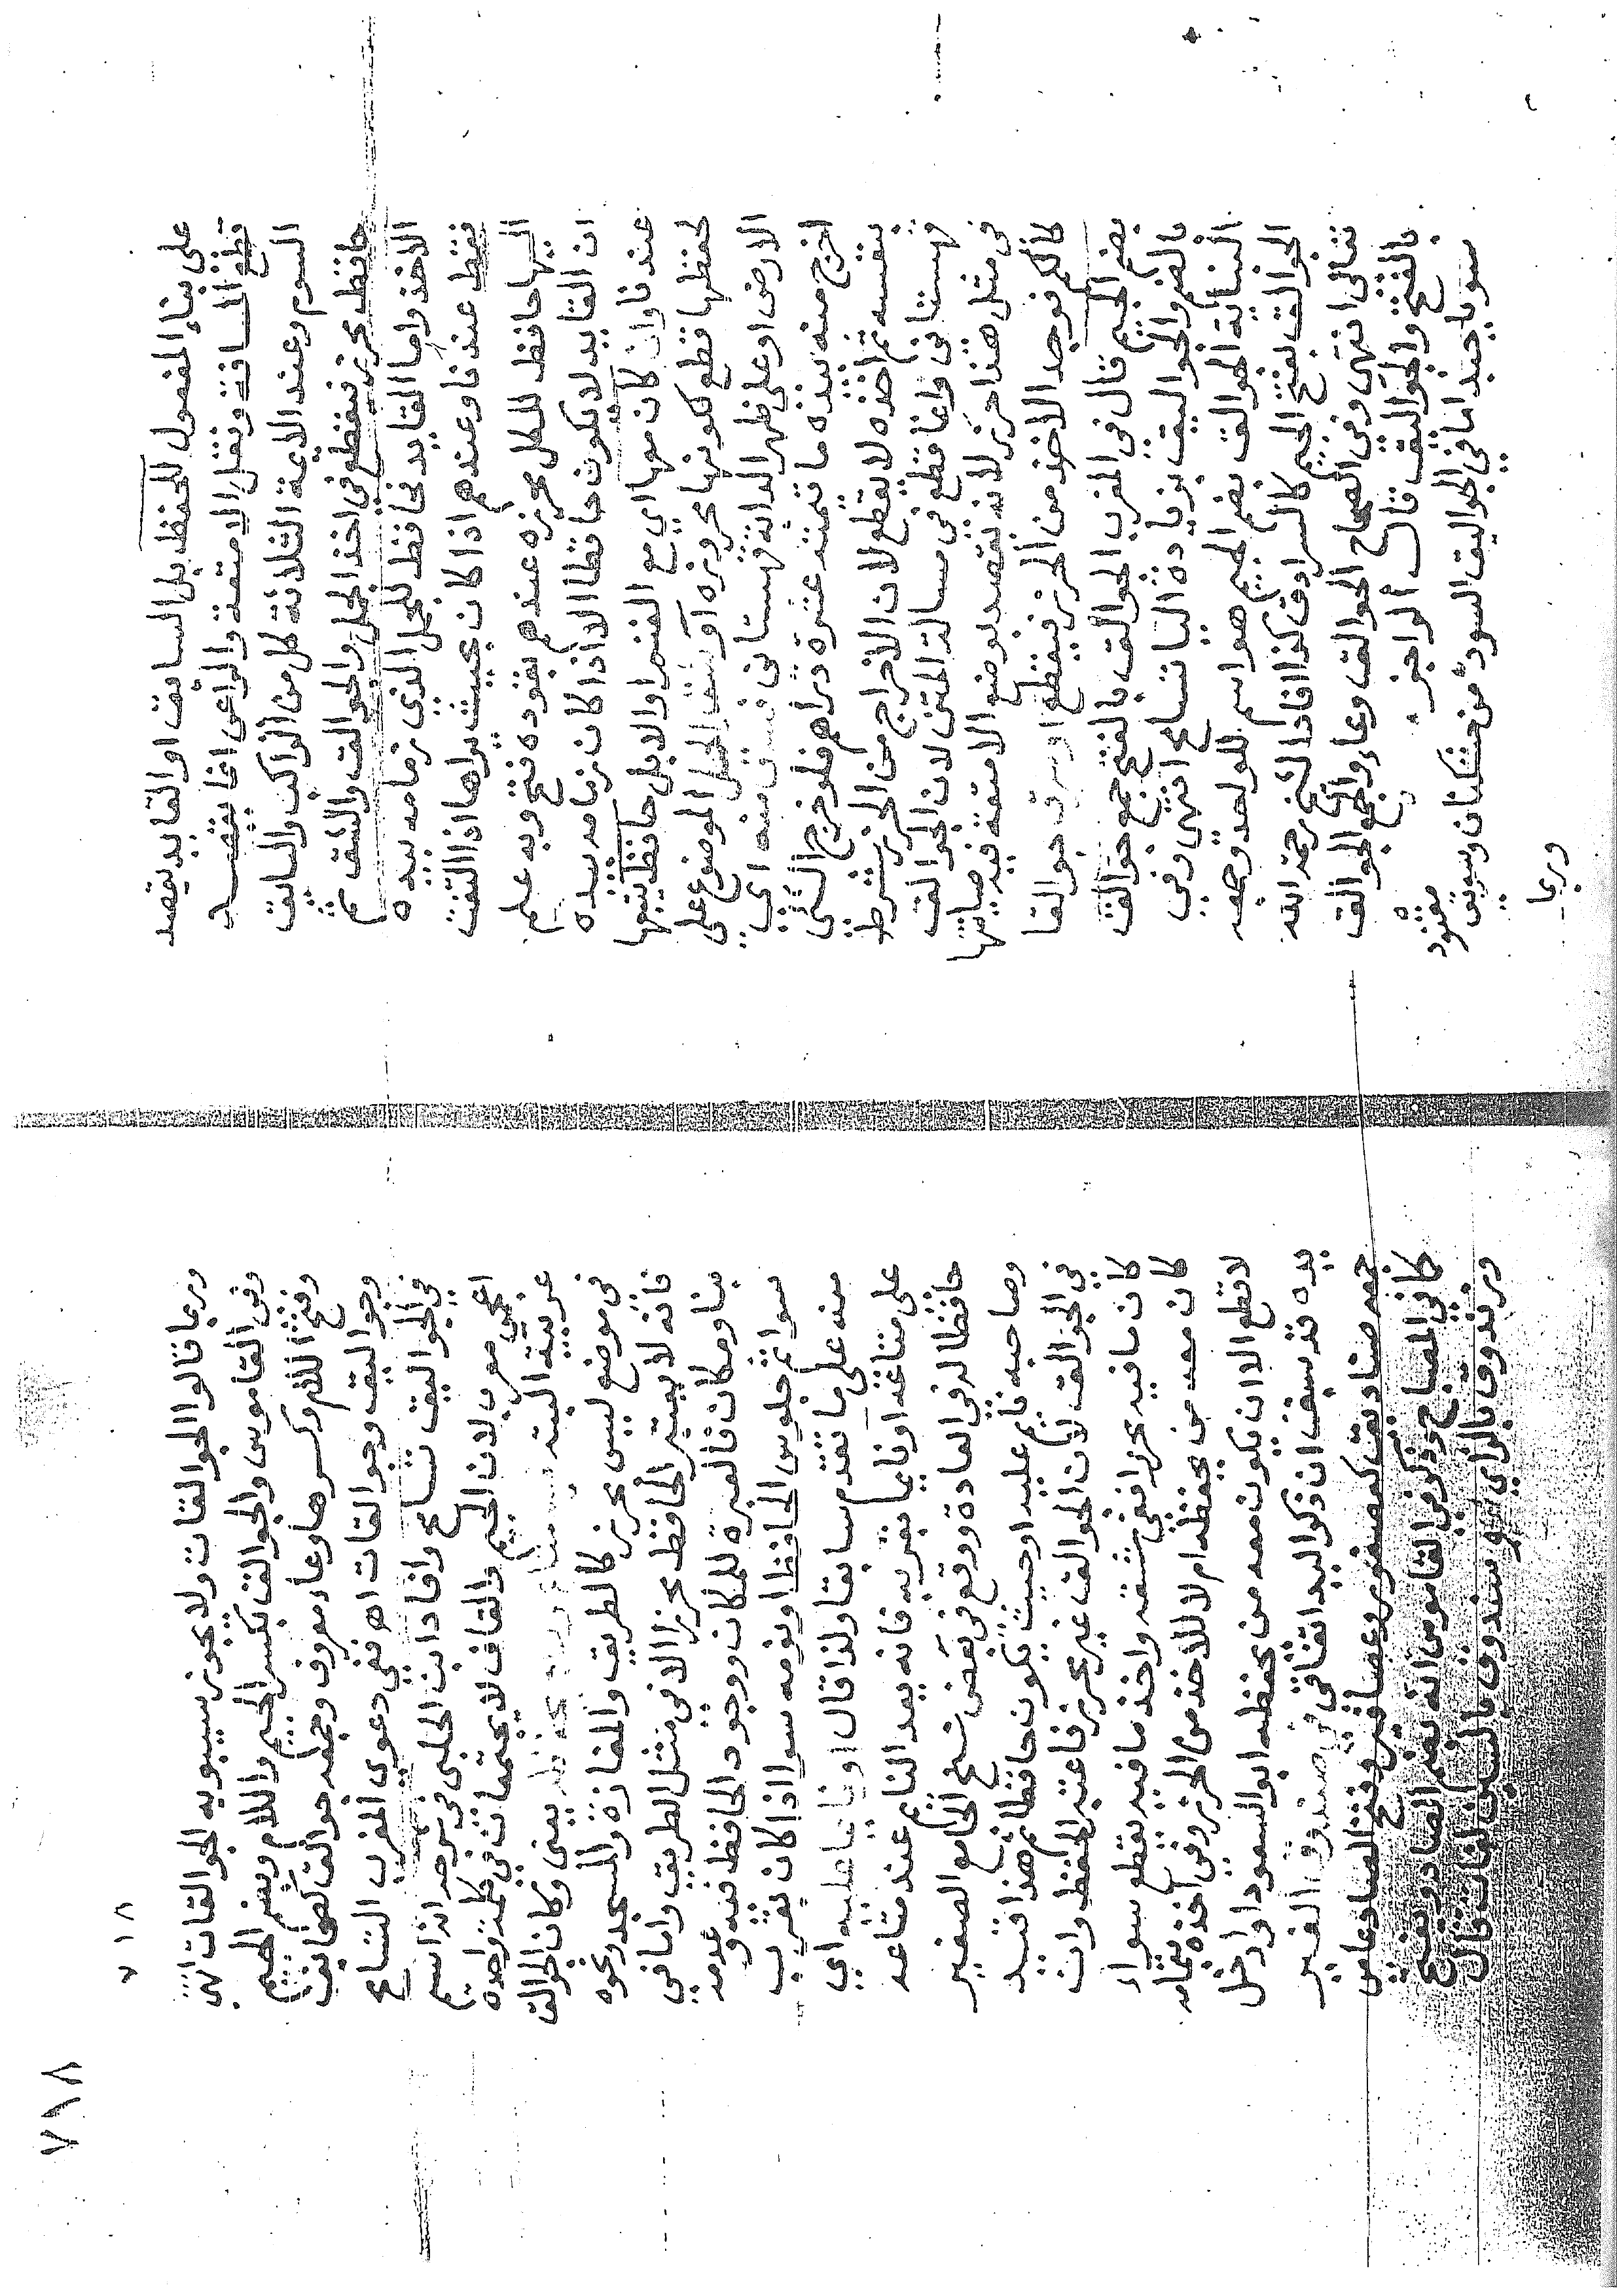 على بناء المفعول للحفظ بل السابق او القايد يقصد
قطع المسافة ونقل الامتعة والراعى انما يقصد
السوم وعند الايمة الثلاثة كل من الراكب والسابق
حافظ محرز فيقطع فى اخذ الجمل والجوالق والشق ثم
الاخذ واما القايد فحافظ للجمل الذى زمامه بيده
فقط عندنا وعندهم اذا كان بحيث يراها اذا التفت
اليها حافظ للكل محرزه عندهم بقوده فتح وبه علم
ان القايد لا يكون حافظا الا اذا كان زمامه بيده
عندنا وان كان معها اي مع الغنم او الابل حافظ يتبها
لحفظها قطع لكونها محروزه او شق الحمل الموضوع على
الارض او على ظهر الدابة قهستانى فسرق منه اي
اخرج منه بيده ما قيمته عشرة دراهم فلو خرج الشى
بنفسه ثم اخذه لا يقطع لان الاخراج من الحرز شرط
قهستانى وانما قطع فى مسالة المتن لان الجوالق
فى مثل هذا حرز لانه يقصد بوضع الامتعة فيه صيانتها
كالكم فوجد الاخذ من الحرز فيقطع او سرق جوالقا
بضم الجيم قال فى المغرب الجوالق بالفتح جمع جوالق
بالضم والجواليق بزيادة اليا تسامح انتهى وفى
النهاية الجوالق بضم الجيم هو اسم للواحد وجمعه
الجوالق بفتح الجيم كالسرادق كذا افاد الشيخ رحمه الله
تعالى انتهى وفى الصحاح الجوالق وعاء والجمع الجوالق
بالفتح والجواليق قال الراجز
سويا حبذا ما فى الجواليق السود من خشكنان وسويق مقنود
وربما
٧١٨
٧١٨
وربما قالوا الجوالقات ولا يجوز سيبويه الجوالقات انتهى
وفى القاموس والجوالق بكسر الجيم واللام وبضم الجيم
وفتح اللام وكسرها وعاء معروف وجمعه جوالق كصحايف
وجواليق وجوالقات اهـ ففى دعوى المغرب التسامح
فى الجواليق تسامح وافاد ابن الحلبى فى سرحه انه اسم
اعجمى معرب لان الجيم والقاف لا يجتمعان فى كلمة واحدة
عربية البتة يعنى وكان الجوالق
فى موضع ليس بحرز كالطريق والمفازة والمسجد ونحوه
فانه لا يعتبر الحافظ محرزا الا فى مثل الطريق واما فى
بنا ومكان فالعبرة للمكان ووجود الحافظ فيه وعدمه
سوا ثم جلوس الحافظ او نومه سوا اذا كان بقرب
منه على ما تقدم سابقا ولذا قال او نايما عليه اي
على متاعه او نايما بقربه فانه يعد النايم عند متاعه
حافظا له فى العادة ووقع فى بعض نسخ الجامع الصغير
وصاحبه نايم عليه او حيث يكون حافظا ثم هذا قيد
فى الجوالق لان الجوالق غير محرز فاعتبر الحفظ وان
كان مافيه محرزا ففى شقه واخذ مافيه يقطع سواء
كان معه من يحفظه ام لا للاخذ من الحرز وفى اخذه بتمامه
لا قطع الا ان يكون معه من يحفظه ابو السعود او ادخل
يده قد سبق ان ذكر اليد اتفاقى فى صندوق الغير
جمعه صناديق كعصفور وعصافير وفتح الصاد عامى
كما فى المصباح وذكر فى القاموس انه بضم الصاد وبفتح
وزندوق بالزاي وسندوق بالسين لغات قال